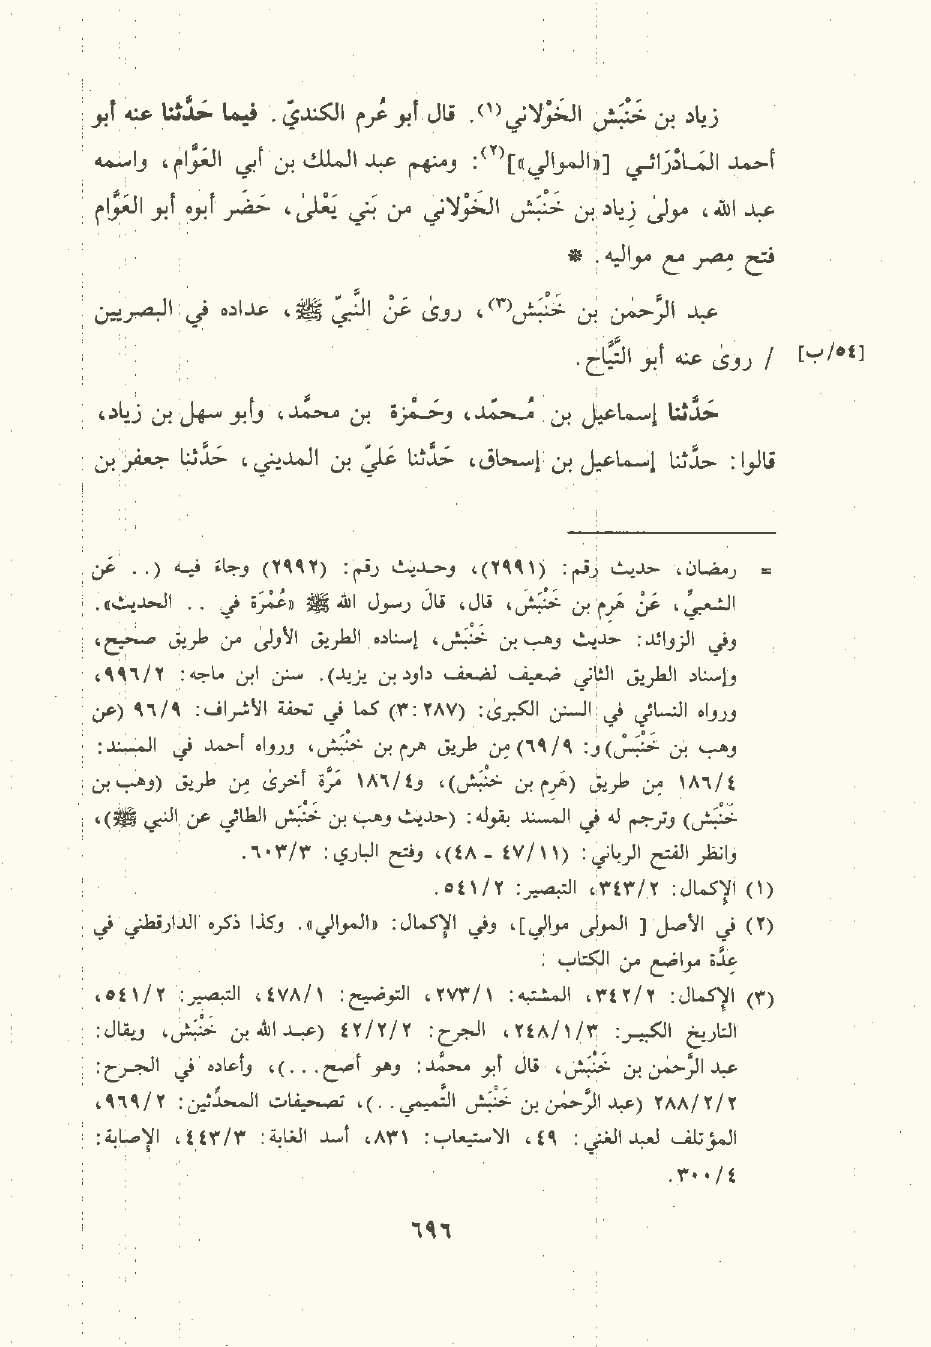 زياد بن خَنْبَش الخَوْلاني(١). قال أبو عُرم الكنديّ. فيما حَدَّثنا عنه أبو
أحمد المَادْرَائي [«الموالي»](٢): ومنهم عبد الملك بن أبي العَوَّام، واسمه
عبد الله، مولىٰ زِياد بن خَنْبَش الخَوْلاني من بَني يَعْلىٰ، حَضَر أبوه أبو العَوَّام
فتح مِصر مع مواليه. *
عبد الرَّحمٰن بن خَنْبَش(٣)، روىٰ عَنْ النَّبيّ ﷺ، عداده في البصريين
[٥٤/ب] / روىٰ عنه أبو التَّيَّاح.
حَدَّثنا إسماعيل بن مُحمّد، وحَمْزة بن محمَّد، وأبو سهل بن زياد،
قالوا: حدَّثنا إسماعيل بن إسحاق، حَدَّثنا عَليّ بن المديني، حَدَّثنا جعفر بن
= رمضان، حديث رقم: (٢٩٩١)، وحديث رقم: (٢٩٩٢) وجاءَ فيه (.. عَن
الشعبيِّ، عَنْ هَرِم بن خَنْبَش، قال، قالَ رسول الله ﷺ «عُمْرَة في .. الحديث».
وفي الزوائد: حديث وهب بن خَنْبَش، إسناده الطريق الأولىٰ من طريق صحيح،
وإسناد الطريق الثاني ضعيف لضعف داود بن يزيد). سنن ابن ماجه: ٩٩٦/٢،
ورواه النسائي في السنن الكبرىٰ: (٣:٢٨٧) كما في تحفة الأشراف: ٩٦/٩ (عن
وهب بن خَنْبَسْ) و: ٦٩/٩ (مِن طريق هرم بن خَنْبَش، ورواه أحمد في المسند:
١٨٦/٤ مِن طريق (هَرِم بن خَنْبَش)، و١٨٦/٤ مَرَّة أخرىٰ مِن طريق (وهب بن
خَنْبَش) وترجم له في المسند بقوله: (حديث وهب بن خَنْبَش الطائي عن النبي ﷺ)،
وانظر الفتح الرباني: (٤٧/١١ - ٤٨)، وفتح الباري: ٦٠٣/٣.
(١) الإكمال: ٣٤٣/٢، التبصير: ٥٤١/٢.
(٢) في الأصل [ المولى موالي]، وفي الإكمال: «الموالي». وكذا ذكره الدارقطني في
عِدَّة مواضع من الكتاب :
(٣) الإكمال: ٣٤٢/٢، المشتبه: ٢٧٣/١، التوضيح: ٤٧٨/١، التبصير: ٥٤١/٢،
التاريخ الكبير: ٢٤٨/١/٣، الجرح: ٤٢/٢/٢ (عبد الله بن خَنْبَش، ويقال:
عبد الرَّحمٰن بن خَنْبَش، قالَ أبو محمَّد: وهو أصح...)، وأعاده في الجرح:
٢٨٨/٢/٢ (عبد الرَّحمٰن بن خَنْبَش التَّميمي..)، تصحيفات المحدِّثين: ٩٦٩/٢،
المؤتلف لعبد الغني: ٤٩، الاستيعاب: ٨٣١، أسد الغابة: ٤٤٣/٣، الإصابة:
٣٠٠/٤.
٦٩٦